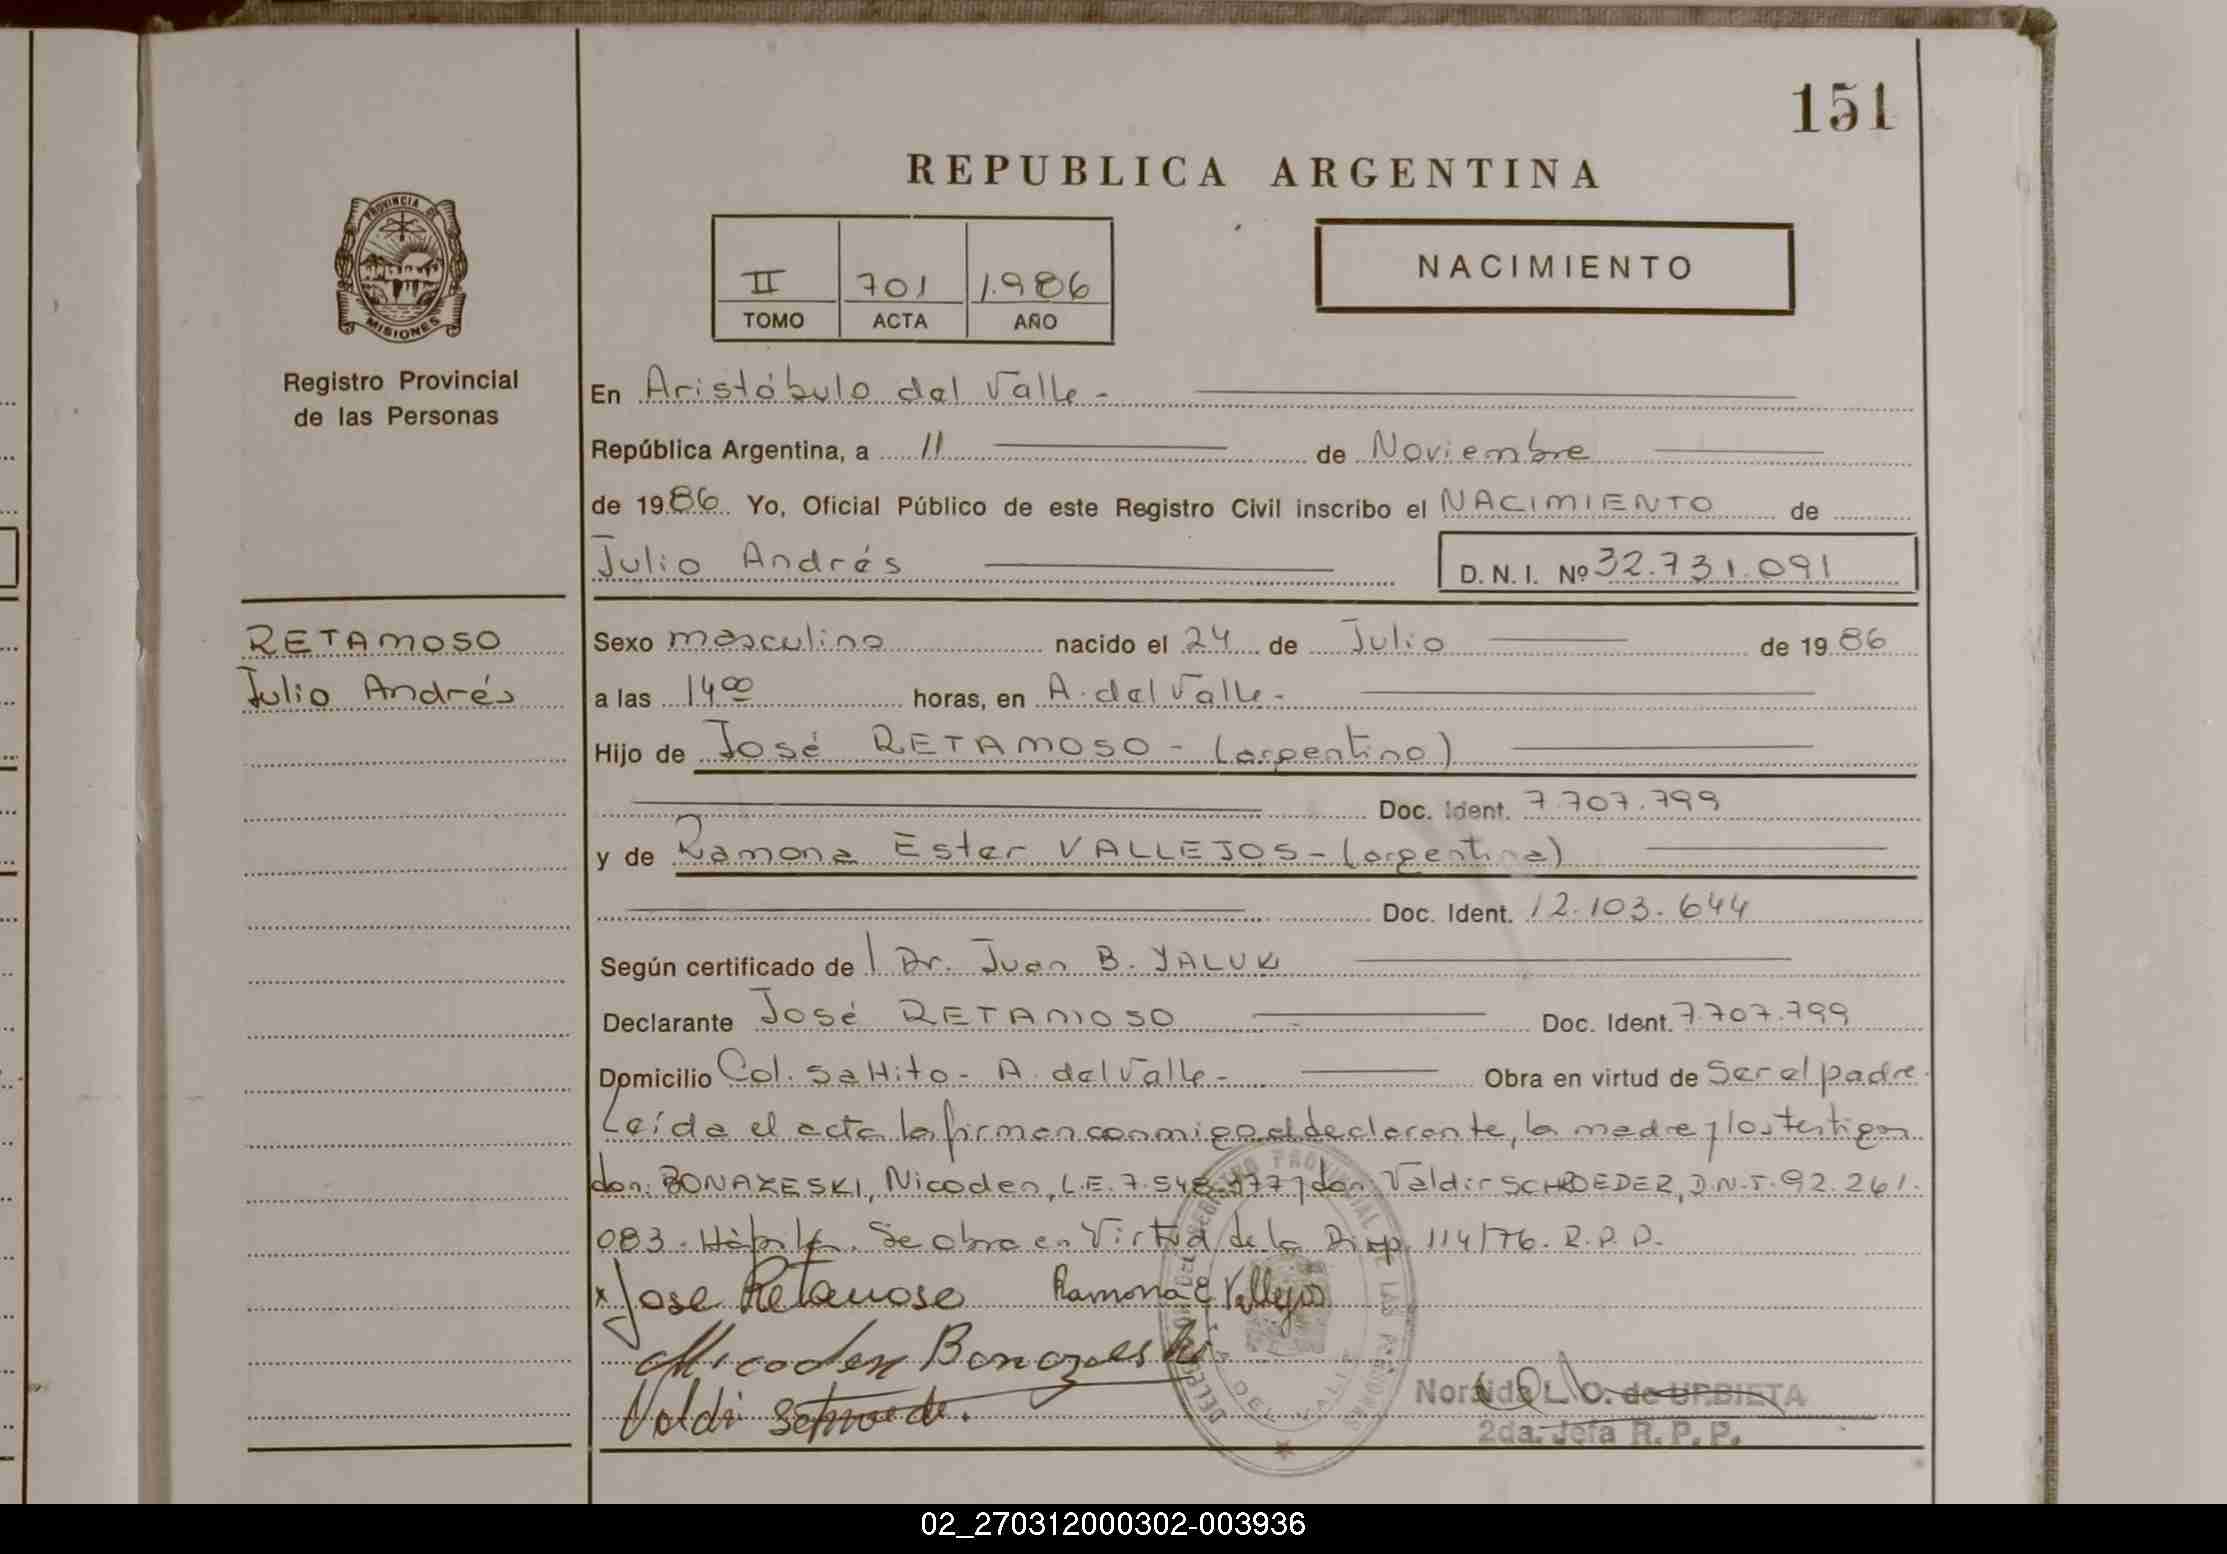 151
REPUBLICA ARGENTINA
PROVINCIA DE
MISIONES
Registro Provincial
de las Personas
II 701 1.986
TOMO ACTA AÑO
NACIMIENTO
En Aristóbulo del Valle -
República Argentina, a 11 de Noviembre
de 1986. Yo, Oficial Público de este Registro Civil inscribo el NACIMIENTO de
Julio Andrés D. N. I. Nº 32.731.091
RETAMOSO
Julio Andrés
Sexo masculino nacido el 24 de Julio de 1986
a las 14 00 horas, en A. del Valle -
Hijo de José RETAMOSO - (argentino)
Doc. Ident. 7.707.799
y de Ramona Ester VALLEJOS - (argentina)
Doc. Ident. 12.103.644
Según certificado de l Dr. Juan B. YALUK
Declarante José RETAMOSO Doc. Ident. 7.707.799
Domicilio Col. Saltito - A. del Valle - Obra en virtud de Ser el padre.
Leída el acta la firman conmigo el declarante, la madre y los testigos
don: BONAZESKI, Nicoden, L.E. 7.548. y don Valdir SCHROEDER, D.N.I. 92.261.
083. Se obra en Virtud de la Disp. 114/76. R.P.P.
x Jose Retamoso Ramona E Vallejos
Nicoden Bonazeski
Valdi
DEL REGISTRO PROVINCIAL DE LAS PERSONAS
DEL VALLE
Noraida L. O. de URBIETA
2da. Jefa R. P. P.
02_270312000302-003936